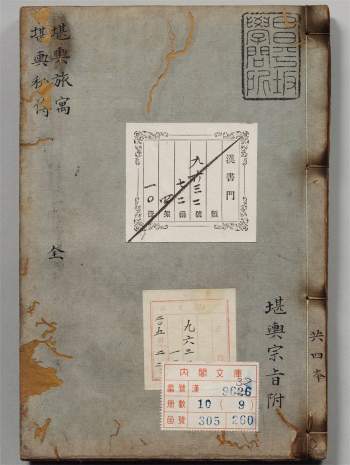 堪輿旅寓
堪輿秘
全
昌平坂
學問所
漢書門
類
號
函
架
冊
九六三二
七二
四
一〇
堪輿宗旨附
共四本
九六三
二〇五
內閣文庫
番號 漢 9626
32
冊數 10 (9)
函號 305 260